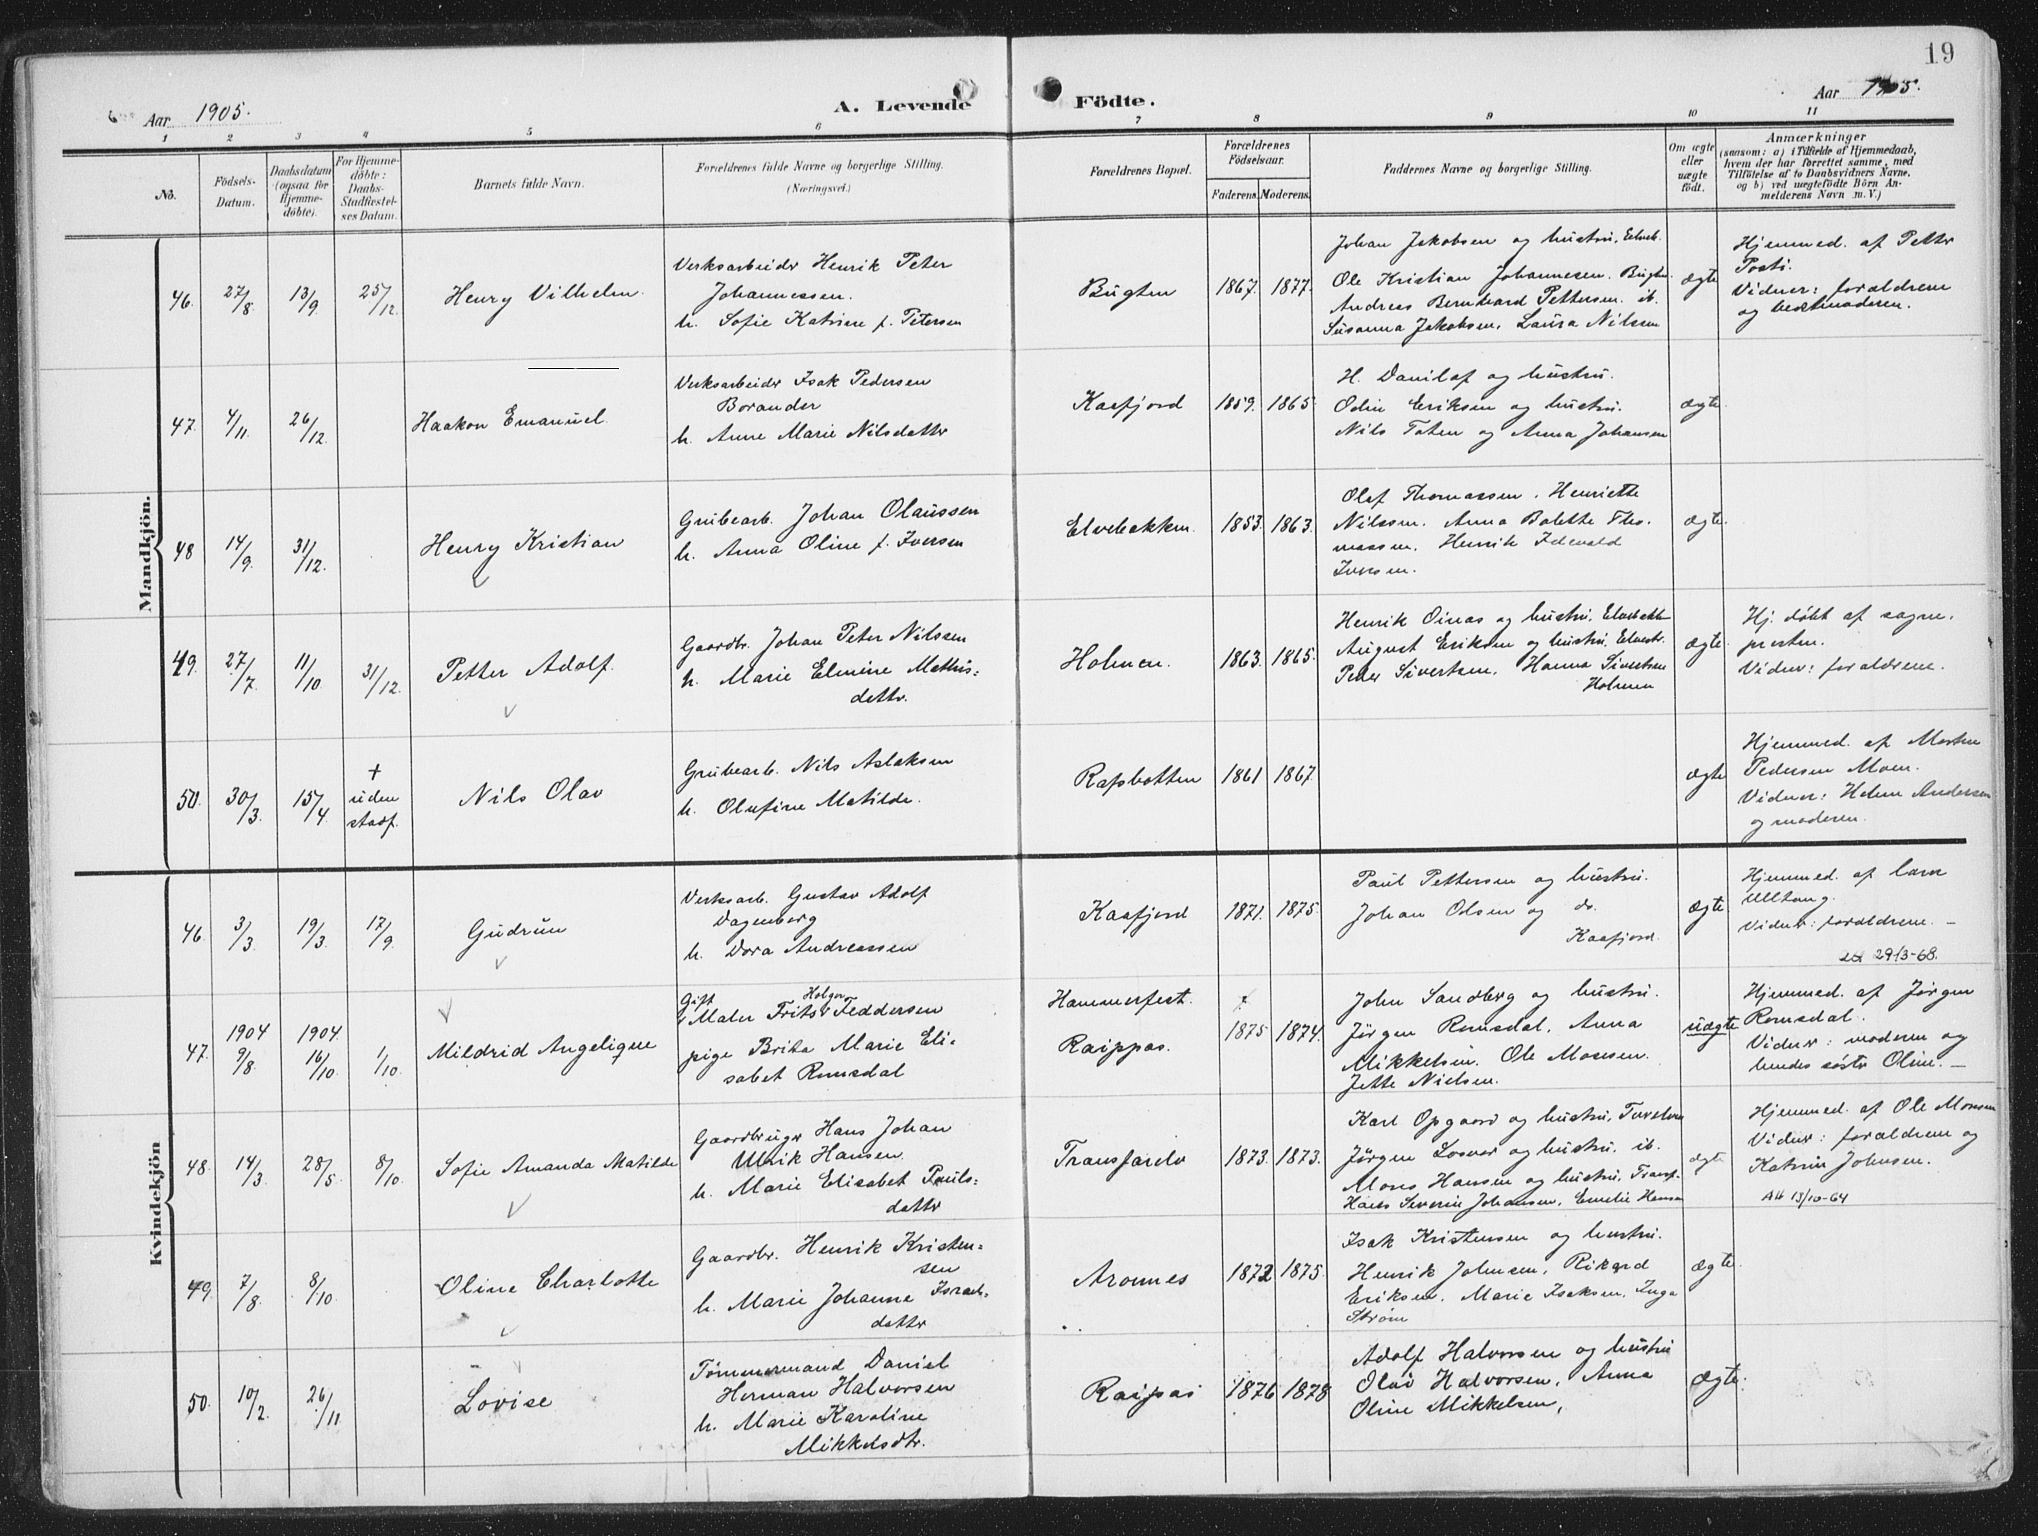 19
Aar 1905.
A. Levende Födte.
Aar 1905.
1 2 3 4 5 6 7 8 9 10 11
No.
Födsels-
Datum.
Daabsdatum
(ogsaa for
Hjemme-
døbte).
For Hjemme-
döbte:
Daabs-
Stadfæstel-
ses Datum.
Barnets fulde Navn.
Forældrenes fulde Navne og borgerlige Stilling.
(Næringsvei.)
Forældrenes Bopæl.
Forældrenes
Födselsaar.
Faderens. Moderens.
Faddernes Navne og borgerlige Stilling.
Om ægte
eller
uægte
födt.
Anmærkninger
(saasom: a) i Tilfælde af Hjemmedaab,
hvem der har forrettet samme, med
Tilföielse af to Daabsvidners Navne,
og b) ved uægtefödte Börn An-
melderens Navn m. V.)
Mandkjön.
46. 27/8. 13/9 25/12.
Henry Vilhelm.
Verksarbeider Henrik Peter
Johannessen.
h. Sofie Katrine f. Petersen
Bugten 1867. 1877.
Johan Jakobsen og hustru, Elveb.
Ole Kristian Johannesen. Bugten
Andreas Bernhard Pettersen. ib.
Susanna Jakobsen, Laura Nilssen
ægte
Hjemmed. af Petter
Posti.
Vidner: forældrene
og bestmoderen.
47. 4/11. 26/12.
Haakon Emanuel.
Verksarbeider Isak Pedersen
Borander
h. Anne Marie Nilsdatter
Kaafjord 1859. 1865
H. Danilof og hustru.
Odin Eriksen og hustru.
Nils Toten og Anna Johansen
ægte
48 14/9. 31/12.
Henry Kristian
Grubearb. Johan Olaussen
h. Anna Oline f. Iversen
Elvebakken 1853. 1863.
Olaf Thomassen. Henriette
Nilssen. Anna Bolette Tho-
massen. Henrik Edevald
Iversen.
ægte
49. 27/7. 11/10 31/12.
Petter Adolf.
Gaardbr. Johan Peter Nilssen
h. Marie Elmine Mathis-
datter.
Holmen. 1863. 1865.
Henrik Oinas og hustru, Elvebakken
August Eriksen og hustru, Elvebr.
Peder Sivertsen, Hanna Sivertsen
Holmen
ægte
Hj. døbt af sogne-
presten.
Vidner: forældrene.
50. 30/3. 15/4
+
uden
stadf.
Nils Olav
Grubearb. Nils Aslaksen
h. Olufine Matilde.
Rafsbotten 1861 1867
ægte
Hjemmed. af Morten
Pedersen Moen.
Vidner: Helene Andersen
og moderen.
Kvindekjön
46. 3/3. 19/3. 17/9.
Gudrun
Verksarb. Gustav Adolf
Dagenborg
h. Dora Andreassen
Kaafjord 1871. 1875.
Paul Pettersen og hustru.
Johan Olsen og do.
Kaafjord.
ægte
Hjemmed. af
Ulltang.
Vidner: forældrene. —
29/3-68.
47. 1904 9/8 1904. 16/10. 1/10.
Mildrid Angelique
Gift
Maler Frits Holger Feddersen
pige Brita Marie Eli-
sabet Romsdal
Hammerfest.
Raippas. 1875 1874.
John Sandberg og hustru.
Jørgen Romsdal. Anna
Mikkelsen. Ole Monsen.
Jette Nielsen.
uægte
Hjemmed. af Jørgen
Romsdal.
Vidner: moderen og
hendes søster Oline. —
48. 14/3. 28/5 8/10.
Sofie Amanda Matilde
Gaardbruger Hans Johan
Ulrik Hansen.
h. Marie Elisabet Pauls-
datter
Transfarelv 1873. 1873.
Karl Opgaard og hustru, Tverelven
Jørgen Losvar og hustru. ib.
Mons Hansen og hustru, Transf.
Hans Severin Johansen, Emelie Hansen
ægte
Hjemmed. af Ole Monsen
Vidner: forældrene og
Katrine Johnsen.
13/10-64
49. 7/8. 8/10.
Oline Charlotte
Gaardbr. Henrik Kristen-
sen
h. Marie Johanne Israels-
datter
Aronnes 1872 1875.
Isak Kristensen og hustru.
Henrik Johnsen, Rikard
Eriksen. Marie Isaksen. Inga
Strøm
ægte
50. 10/2. 26/11.
Lovise
Tømmermand Daniel
Herman Halvorsen
h. Marie Karoline
Mikkelsdtr.
Raipas 1876 1878
Adolf Halvorsen og hustru
Olav Halvorsen, Anna
Oline Mikkelsen,
ægte.